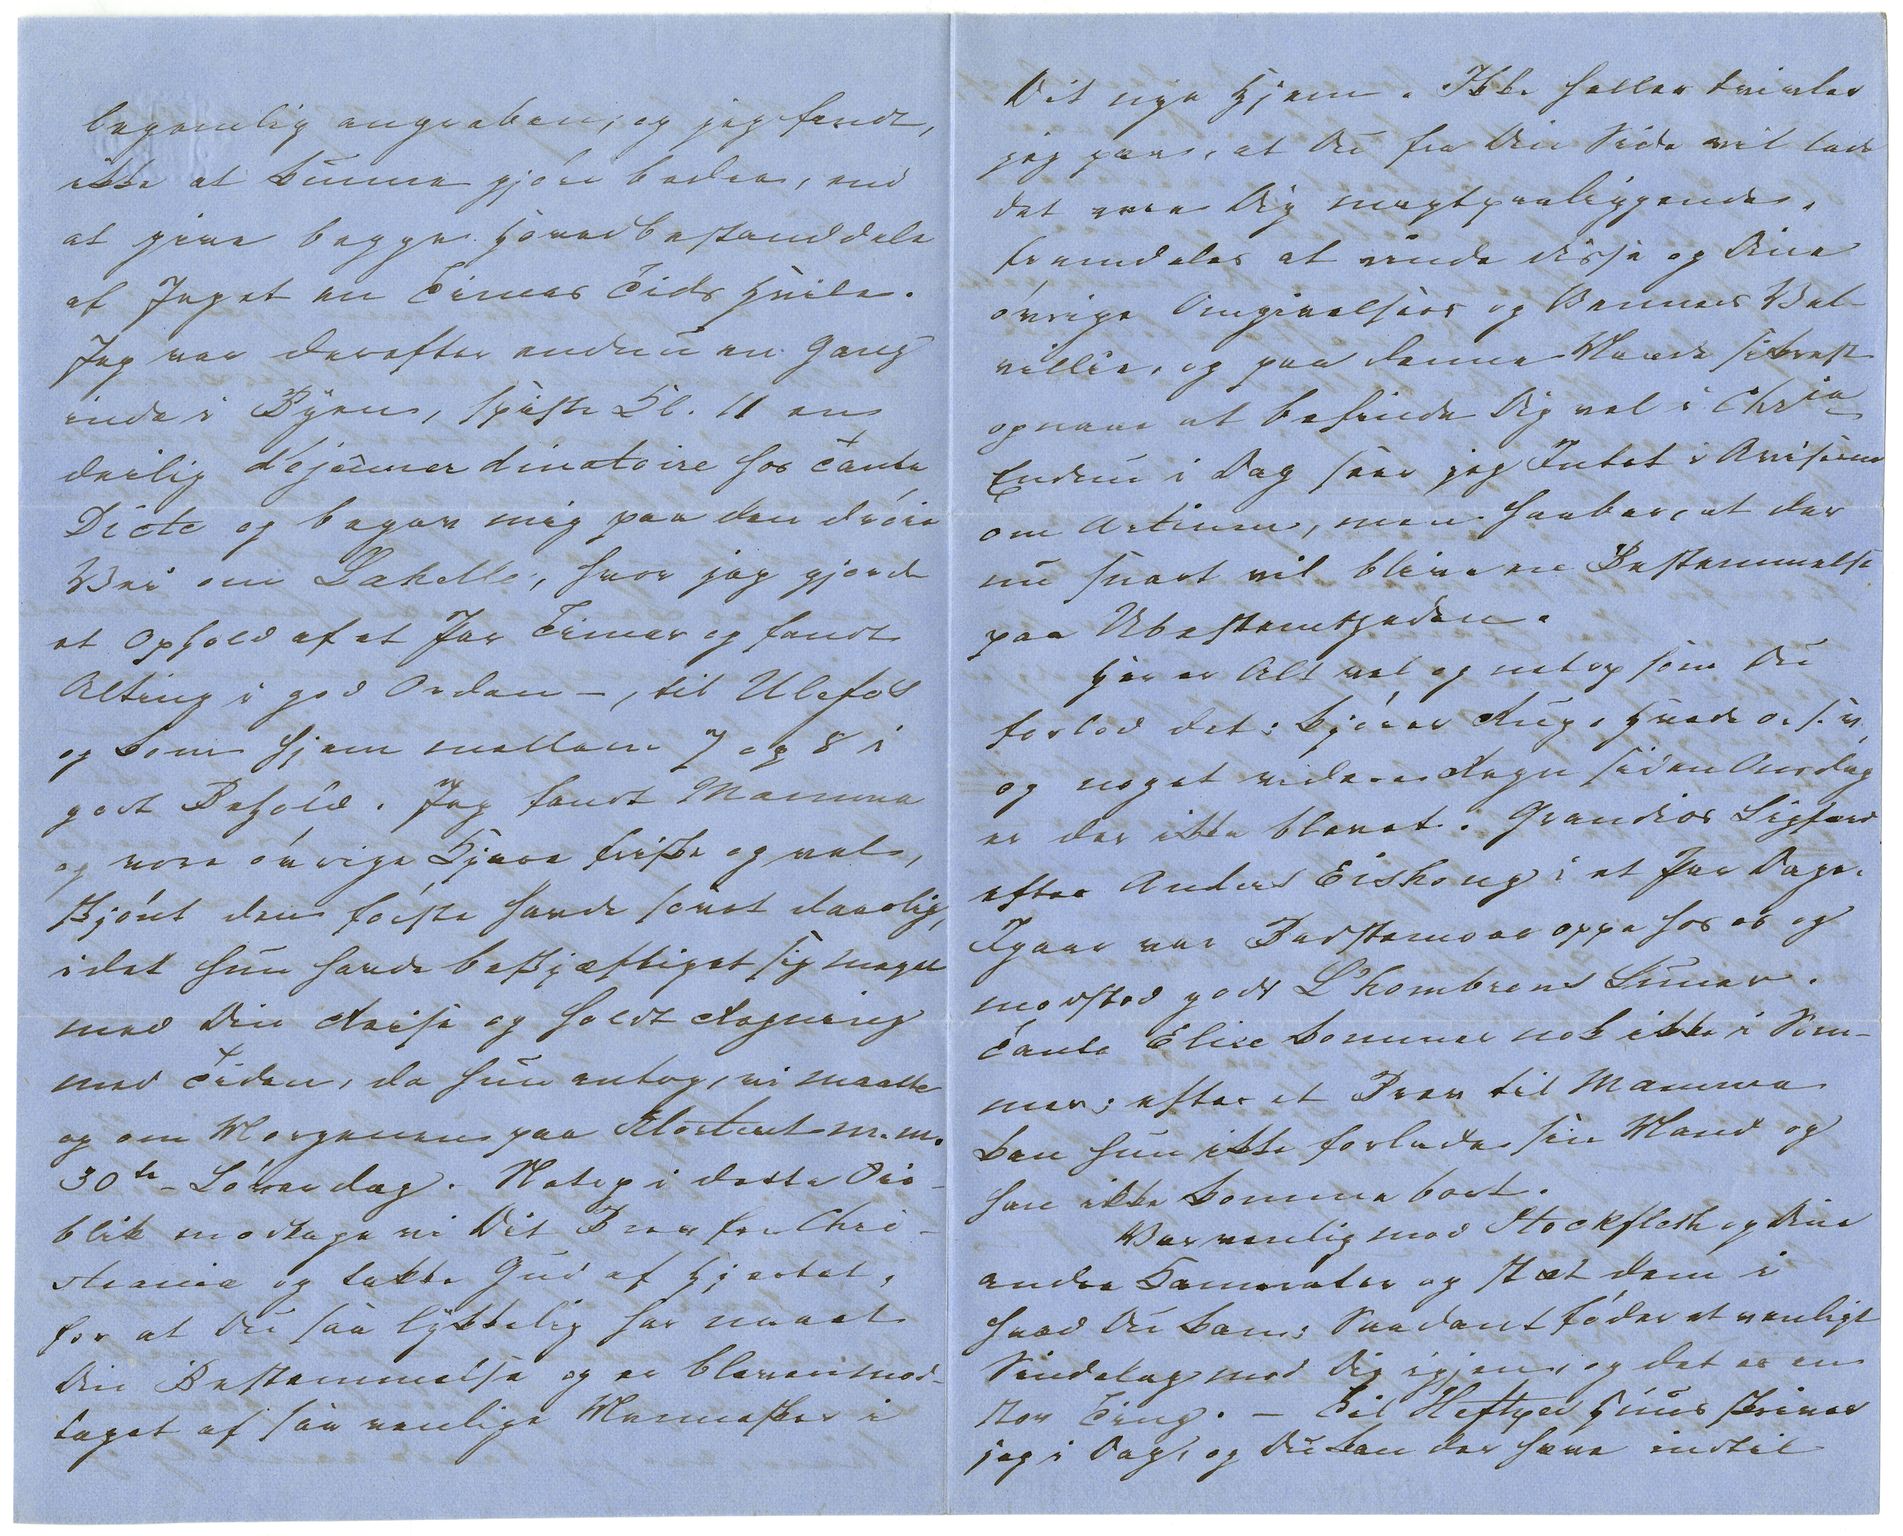 bogentlig angreben, og jeg fandt,
ikke at kunne gjøre bedre, end
at give begge Hovedbestanddele
af Toget en Times Tids Hvile.
Jeg var derefter endnu en Gang
inde i Byen, spiste Kl. 11 en
deilig dejeuner dinatoire hos Tante
Dicte og begav mig paa den drøie
Vei om Lakelle, hvor jeg gjorde
et Ophold af et Par Timer og fandt
Alting i god Orden –, til Ulefos
og kom hjem mellem 7 og 8 i
godt Behold. Jeg fandt Mamma
og vore øvrige Kjære friske og vel,
skjønt den første havde sovet daarlig,
idet hun havde beskjæftiget sig meget
med Din Reise og holdt Regning
med Tiden, da hun antog, vi maatte
og om Morgenen paa m.m.
30te Løverdag. Netop i dette Øie-
blik modtage vi Dit Brev fra Chri-
stiania og takke Gud af Hjertet,
for at Du saa lykkelig har naaet
Din Bestemmelse og er bleven mod-
taget af saa venlige Mennesker i
Dit nye Hjem. Ikke heller tvivler
jeg paa, at Du fra Din Side vil lade
det være Dig magtpaaliggende,
fremdeles at vinde disse og Dine
øvrige Omgivelsers og Venners Vel-
villie, og paa denne Maade sikkrest
opnaae at befinde Dig vel i Chria
Endnu i Dag saae jeg Intet i Aviserne
om Artium, men haaber, at der
nu snart vil blive en Bestemmelse
paa Ubestemtheden.
Her er Alt vel og netop som Du
forlod det; Kjører Rug, Hvede o.s.v.,
og noget videre Regn siden Onsdag
er der ikke blevet. Grandios Ligfærd
efter Anders Eishoug i et Par Dage.
Igaar var Bedstemoer oppe hos os og
modstod godt L'hombrens Luner.
Tante Elise kommer nok ikke i Som-
mer; efter et Brev til Mamma
kan hun ikke forlade sin Mand og
han ikke komme bort.
Vær venlig mod Stockfleth og Dine
andre Kamerater og støt dem i
hvad Du kan; Saadant føder et venligt
Sindelag mod Dig igjen, og det er en
stor Ting. – Til Heftyes Huus skriver
jeg i Dag, og Du kan der have indtil